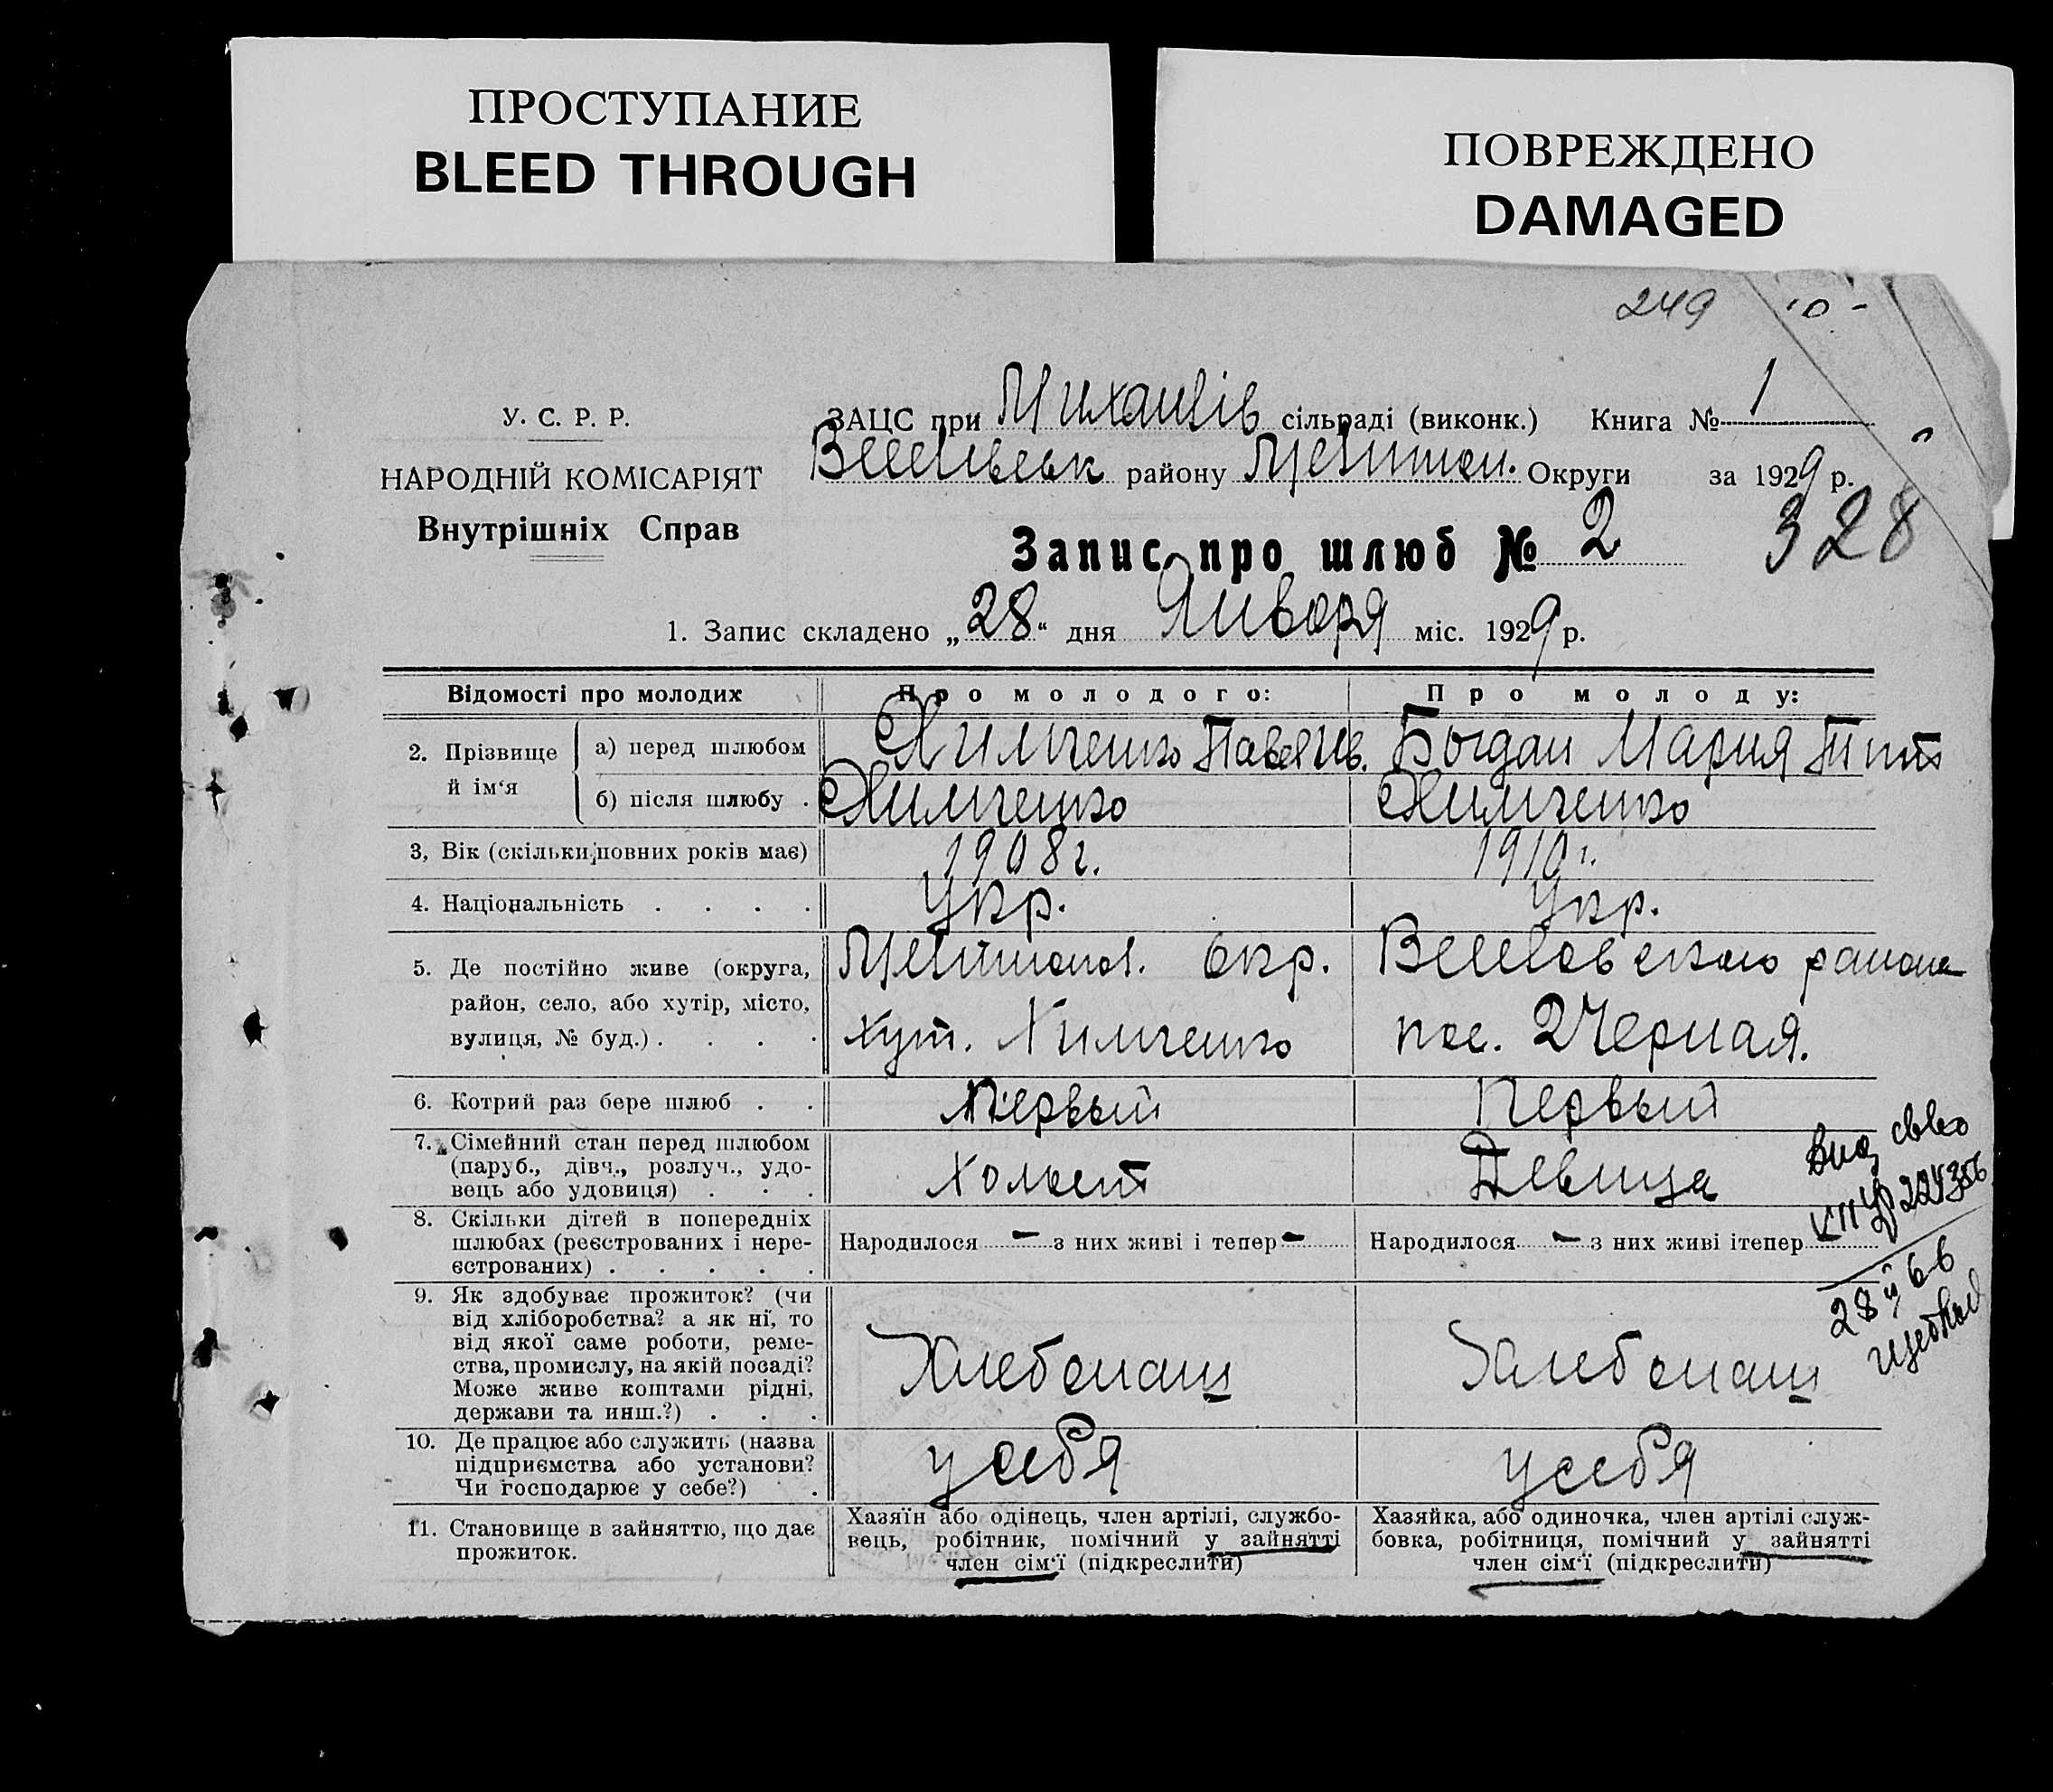 ПРОСТУПАНИЕ
BLEED THROUGH
ПОВРЕЖДЕНО
DAMAGED
249
У. С. Р. Р.
НАРОДНІЙ КОМІСАРІЯТ
Внутрішніх Справ
ЗАЦС при Михайлів сільраді (виконк.) Книга № 1
району Округи за 1929 р.
328
Запис про шлюб № 2
1. Запис складено „28“ дня Января міс. 1929 р.
Відомості про молодих
Про молодого:
Про молоду:
2. Прізвище й ім‘я
а) перед шлюбом
Химченко Павел Ив.
Богдан Мария Тит
б) після шлюбу .
Химченко
Химченко
3, Вік (скільки повних років має)
1908 г.
1910 г.
4. Національність . . . .
Укр.
Укр.
5. Де постійно живе (округа,
район, село, або хутір, місто,
вулиця, № буд.) . . . .
Мелитопол. Окр.
хут. Химченко
Веселовского района
пос. 2 Черная.
6. Котрий раз бере шлюб . .
Первый
Первый
7. Сімейний стан перед шлюбом
(паруб., дівч., розлуч., удо-
вець або удовиця) . . .
Холост
Девица
8. Скільки дітей в попередніх
шлюбах (реєстрованих і нере-
єстрованих) . . . . .
Народилося — з них живі і тепер —
Народилося — з них живі ітепер
9. Як здобуває прожиток? (чи
від хліборобства? а як ні, то
від якої саме роботи, реме-
ства, промислу, на якій посаді?
Може живе коштами рідні,
держави та инш.?) . . .
Хлебопаш
Хлебопаш
10. Де працює або служить (назва
підприємства або установи?
Чи господарює у себе?) .
у себя
у себя
11. Становище в зайняттю, що дає
прожиток.
Хазяїн або одінець, член артілі, службо-
вець, робітник, помічний у зайнятті
член сім‘ї (підкреслити)
Хазяйка, або одиночка, член артілі служ-
бовка, робітниця, помічний у зайнятті
член сім‘ї (підкреслити)